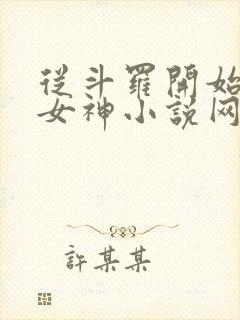 從斗羅開始
女神小說网
許某某